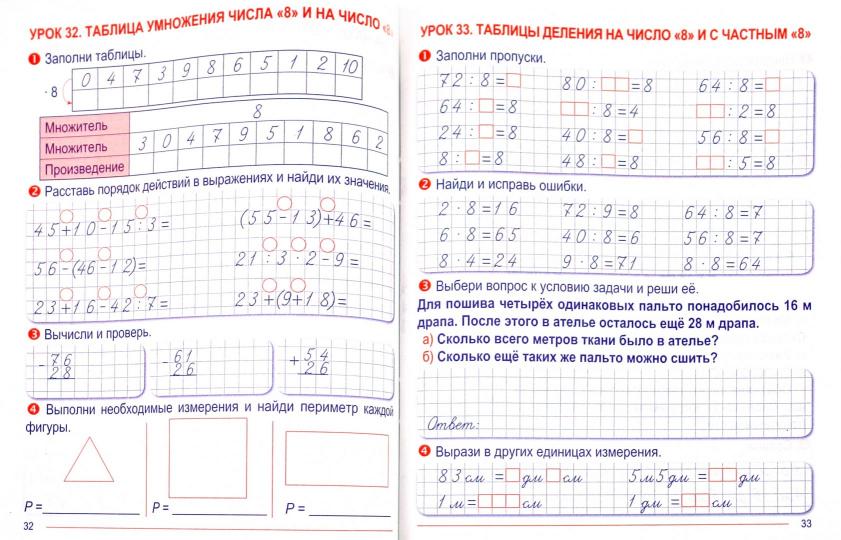 УРОК 32. ТАБЛИЦА УМНОЖЕНИЯ ЧИСЛА «8» И НА ЧИСЛО «8»
1 Заполни таблицы.
· 8
0 4 7 3 9 8 6 5 1 2 10
Множитель 8
Множитель 3 0 4 7 9 5 1 8 6 2
Произведение
2 Расставь порядок действий в выражениях и найди их значения.
45+10-15:3= (55-13)+46=
56-(46-12)= 21:3·2-9=
23+16-42:7= 23+(9+18)=
3 Вычисли и проверь.
-76 -61 +54
28 26 26
4 Выполни необходимые измерения и найди периметр каждой
фигуры.
P= P= P=
32
УРОК 33. ТАБЛИЦЫ ДЕЛЕНИЯ НА ЧИСЛО «8» И С ЧАСТНЫМ «8»
1 Заполни пропуски.
72:8=□ 80:□□=8 64:8=□
64:□=8 □□:8=4 □□:2=8
24:□=8 40:8=□ 56:8=□
8:□=8 48:□=8 □□:5=8
2 Найди и исправь ошибки.
2·8=16 72:9=8 64:8=7
6·8=65 40:8=6 56:8=7
8·4=24 9·8=71 8·8=64
3 Выбери вопрос к условию задачи и реши её.
Для пошива четырёх одинаковых пальто понадобилось 16 м
драпа. После этого в ателье осталось ещё 28 м драпа.
а) Сколько всего метров ткани было в ателье?
б) Сколько ещё таких же пальто можно сшить?
Ответ:
4 Вырази в других единицах измерения.
83см =□дм□см 5м5дм =□□дм
1м=□□□см 1дм=□□см
33